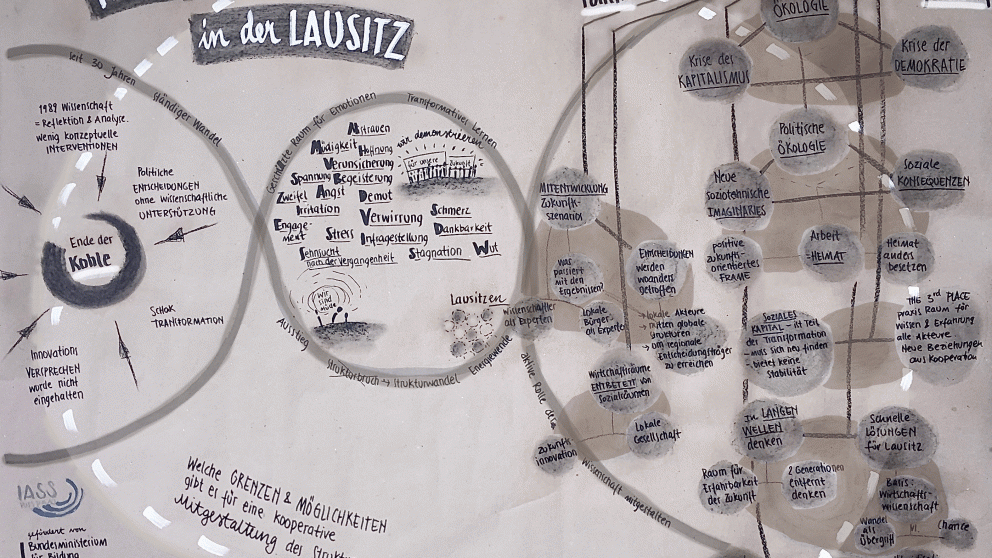 in der LAUSITZ
seit 30 Jahren
Ständiger Wandel
1989 Wissenschaft
= Reflektion & Analyse.
wenig konzeptuelle
INTERVENTIONEN
Politische
ENTSCHEIDUNGEN
ohne wissenschaftliche
UNTERSTÜTZUNG
Ende der
Kohle
Schok
TRANSFORMATION
Innovations
VERSPRECHEN
wurde nicht
eingehalten
Geschützte Raum für Emotionen
Transformatives Lernen
Misstrauen
Müdigkeit Hoffnung
Verunsicherung
Spannung Begeisterung
Zweifel Angst Demut
Irritation
Verwirrung Schmerz
Engage-
ment
Stress Infragestellung Dankbarkeit
Sehnsucht
nach der Vergangenheit
Stagnation Wut
wir demonstrieren
für unsere Zukunft
Wir
sind
müde
Lausitzen
Ausstieg
Strukturbruch → Strukturwandel
Energiewende
aktive Rolle der
Wissenschaft mitgestalten
ÖKOLOGIE
Krise des
KAPITALISMUS
Krise der
DEMOKRATIE
Politische
ÖKOLOGIE
Neue
soziotechnische
IMAGINARIES
Soziale
KONSEQUENZEN
positive
zukunfts-
orientiertes
FRAME
Arbeit
=HEIMAT
Heimat
anders
besetzen
MITENTWICKLUNG
Zukunfts-
szenarios
was
passiert
mit den
Ergebnissen?
Entscheidungen
werden
woanders
getroffen
Wissenschaftler
als Experten
Lokale
Bürger
als Experte
→ lokale Akteure
→ mitten globale
Strukturen
→ um regionale
Entscheidungsträger
zu erreichen
Wirtschaftsräume
EINGEBETTET von
Sozialräumen
Zukunfts
innovation
Lokale
Gesellschaft
SOZIALES
KAPITAL - ist Teil
der Transformation
- muss sich neu finden
- bietet keine
Stabilität
THE 3rd PLACE
praxis Raum für
Wissen & Erfahrung
alle Akteure
Neue Beziehungen
aus Kooperation
In LANGEN
WELLEN
denken
Schnelle
LÖSUNGEN
für Lausitz
Raum für
Erfahrbarkeit
der Zukunft
2 Generationen
entfernt
denken
Basis:
Wirtschafts-
wissenschaft
Wandel
als
Übergriff
vs.
Chance
IASS
gefördert vom
Bundesministerium
für Bildung
Welche GRENZEN & MÖGLICHKEITEN
gibt es für eine kooperative
Mitgestaltung des